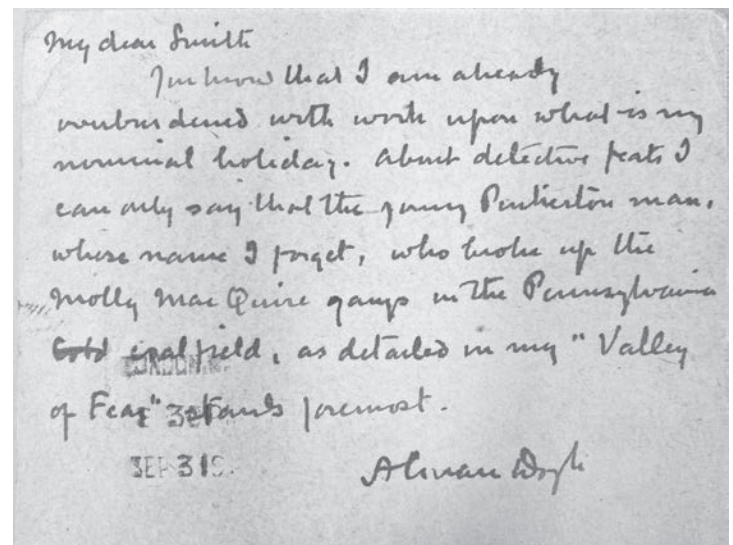 My dear Smith
You know that I am already
overburdened with work upon what is my
nominal holiday. About detective feats I
can only say that the young Pinkerton man,
whose name I forget, who broke up the
Molly MacQuire gangs in the Pennsylvania
Gold coalfield, as detailed in my "Valley
LONDON.
of Fear" stands foremost.
SEP 3
A Conan Doyle